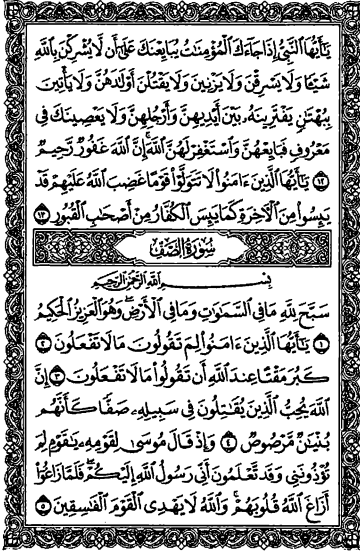 يَٰٓأَيُّهَا ٱلنَّبِيُّ إِذَا جَآءَكَ ٱلْمُؤْمِنَٰتُ يُبَايِعْنَكَ عَلَىٰٓ أَن لَّا يُشْرِكْنَ بِٱللَّهِ
شَيْـًٔا وَلَا يَسْرِقْنَ وَلَا يَزْنِينَ وَلَا يَقْتُلْنَ أَوْلَٰدَهُنَّ وَلَا يَأْتِينَ
بِبُهْتَٰنٍ يَفْتَرِينَهُۥ بَيْنَ أَيْدِيهِنَّ وَأَرْجُلِهِنَّ وَلَا يَعْصِينَكَ فِي
مَعْرُوفٍ فَبَايِعْهُنَّ وَٱسْتَغْفِرْ لَهُنَّ ٱللَّهَ إِنَّ ٱللَّهَ غَفُورٌ رَّحِيمٌ
١٢ يَٰٓأَيُّهَا ٱلَّذِينَ ءَامَنُوا۟ لَا تَتَوَلَّوْا۟ قَوْمًا غَضِبَ ٱللَّهُ عَلَيْهِمْ قَدْ
يَئِسُوا۟ مِنَ ٱلْءَاخِرَةِ كَمَا يَئِسَ ٱلْكُفَّارُ مِنْ أَصْحَٰبِ ٱلْقُبُورِ ١٣
سُورَةُ الصَّفِّ
بِسْمِ ٱللَّهِ ٱلرَّحْمَٰنِ ٱلرَّحِيمِ
سَبَّحَ لِلَّهِ مَا فِي ٱلسَّمَٰوَٰتِ وَمَا فِي ٱلْأَرْضِ وَهُوَ ٱلْعَزِيزُ ٱلْحَكِيمُ
١ يَٰٓأَيُّهَا ٱلَّذِينَ ءَامَنُوا۟ لِمَ تَقُولُونَ مَا لَا تَفْعَلُونَ ٢
كَبُرَ مَقْتًا عِندَ ٱللَّهِ أَن تَقُولُوا۟ مَا لَا تَفْعَلُونَ ٣ إِنَّ
ٱللَّهَ يُحِبُّ ٱلَّذِينَ يُقَٰتِلُونَ فِي سَبِيلِهِۦ صَفًّا كَأَنَّهُم
بُنْيَٰنٌ مَّرْصُوصٌ ٤ وَإِذْ قَالَ مُوسَىٰ لِقَوْمِهِۦ يَٰقَوْمِ لِمَ
تُؤْذُونَنِي وَقَد تَّعْلَمُونَ أَنِّي رَسُولُ ٱللَّهِ إِلَيْكُمْ فَلَمَّا زَاغُوٓا۟
أَزَاغَ ٱللَّهُ قُلُوبَهُمْ وَٱللَّهُ لَا يَهْدِي ٱلْقَوْمَ ٱلْفَٰسِقِينَ ٥